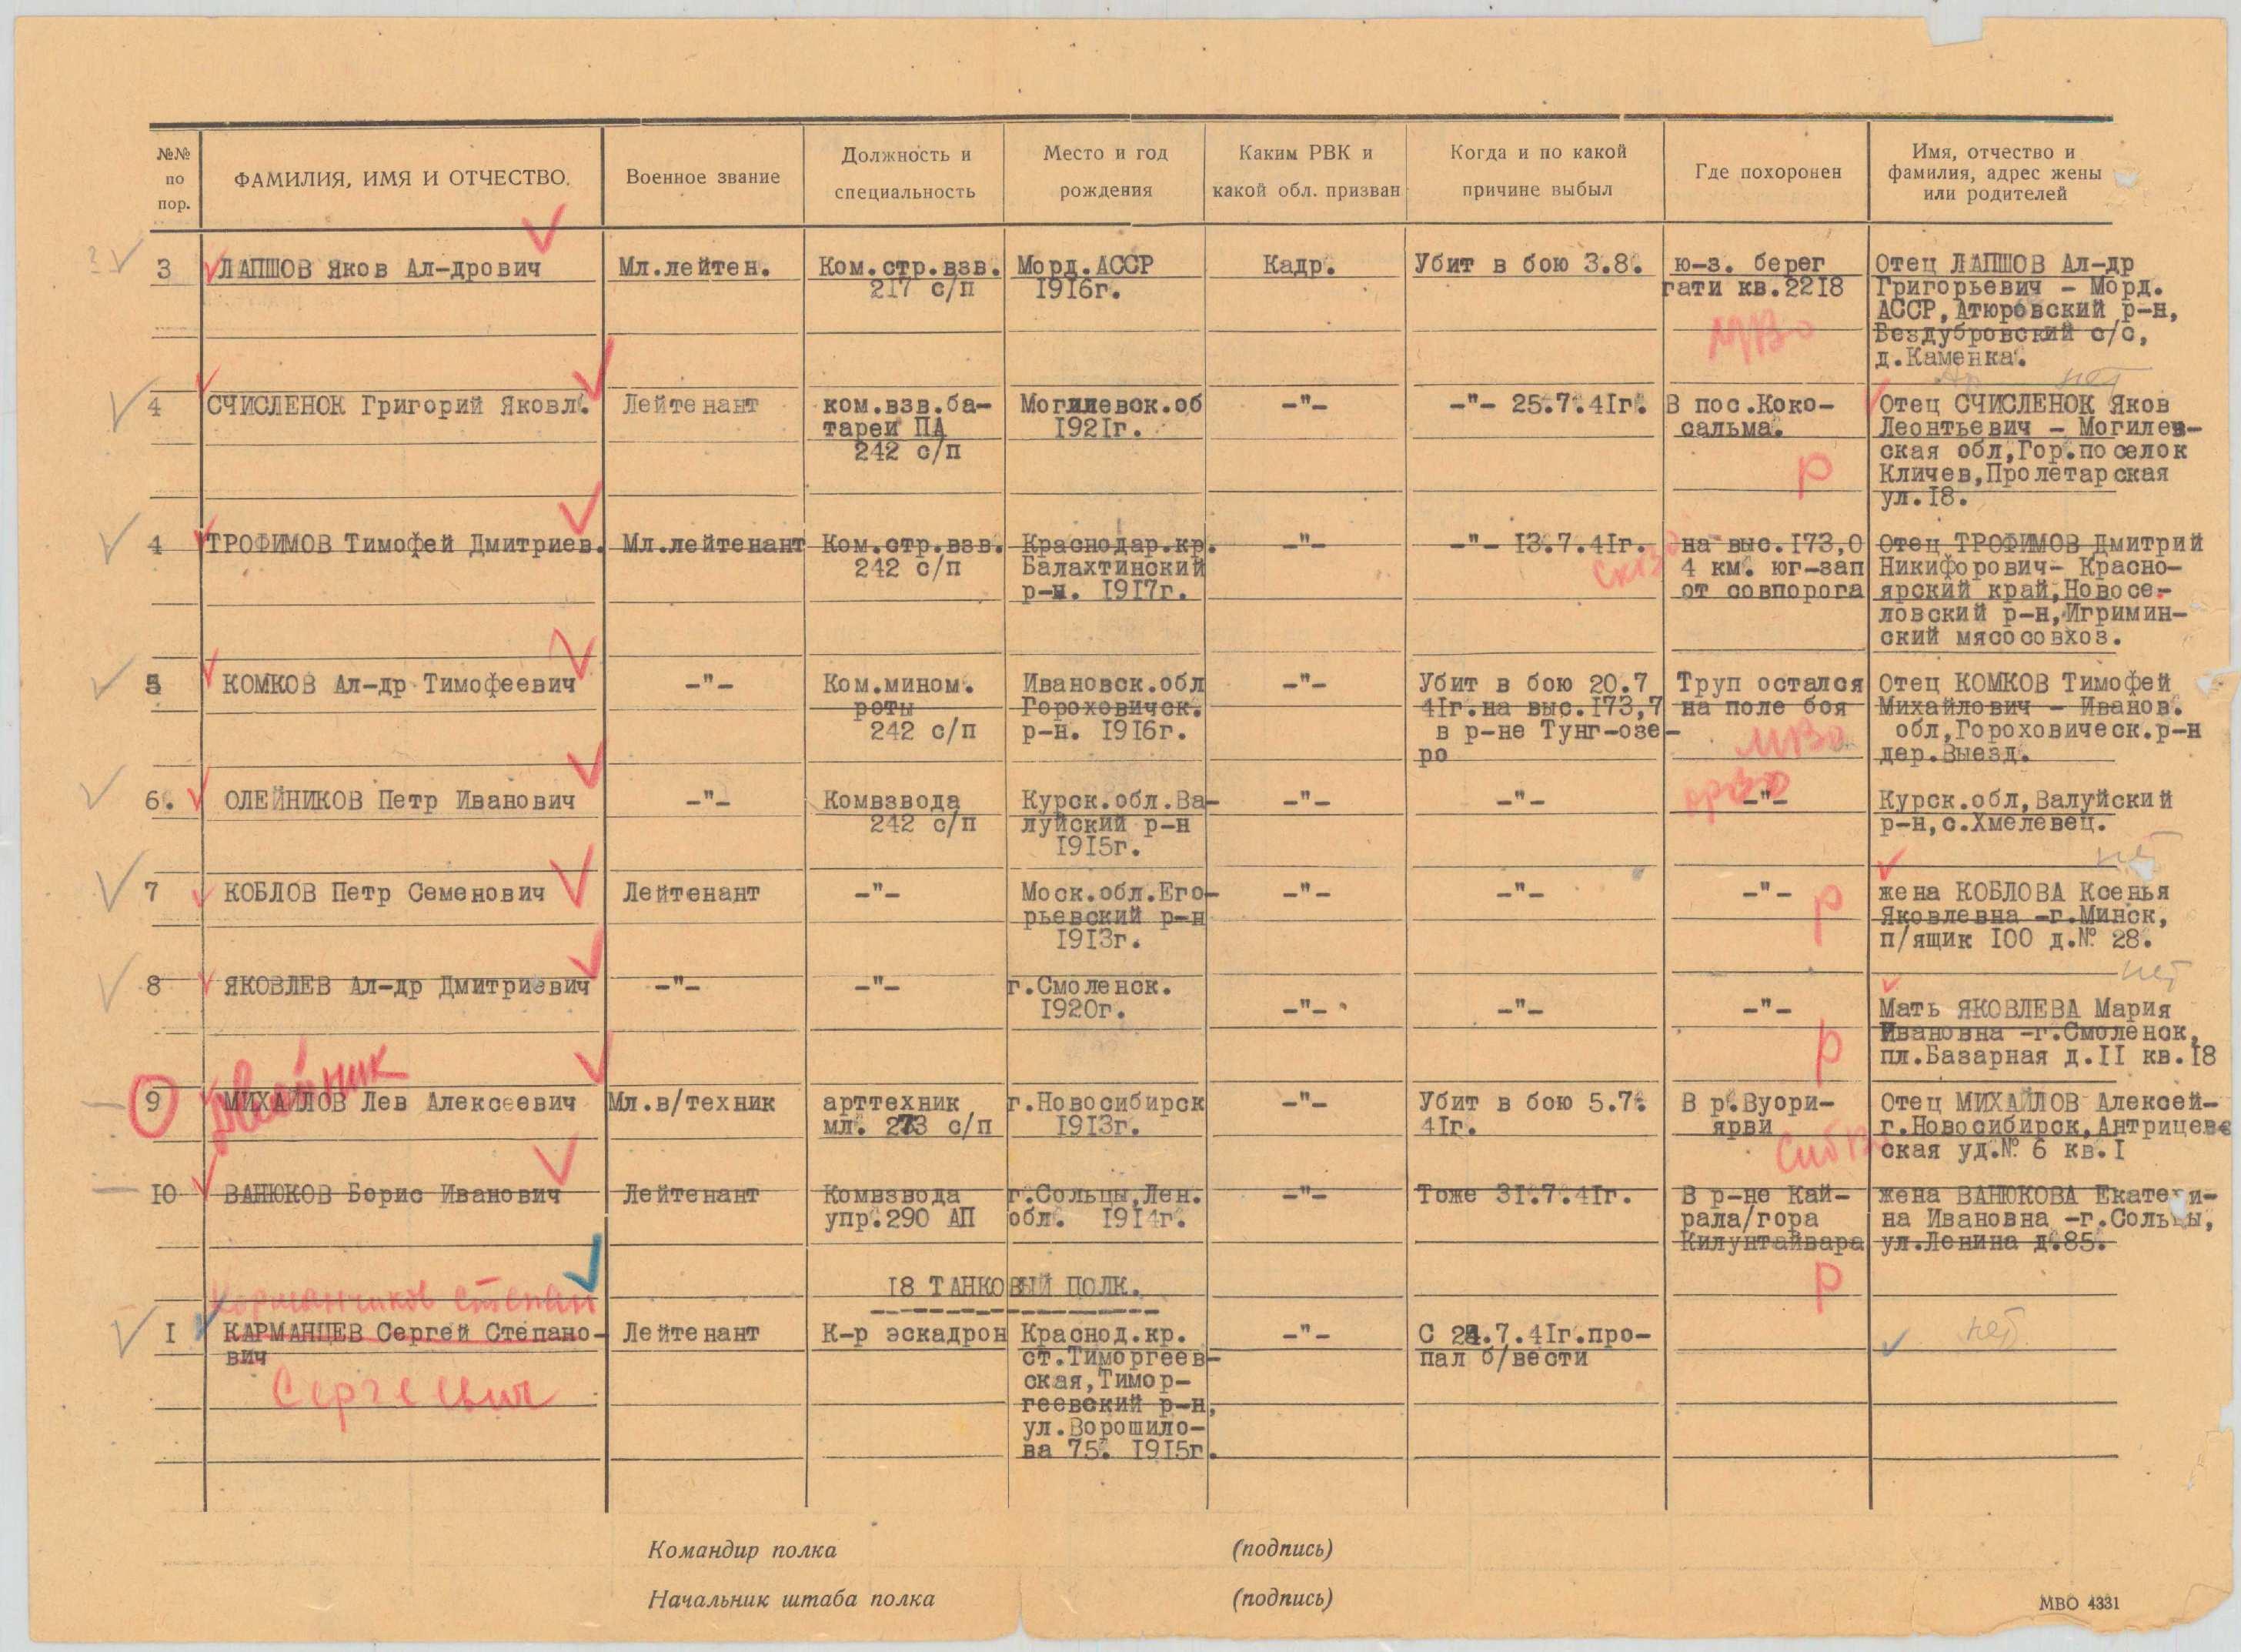 №№ по пор.
ФАМИЛИЯ, ИМЯ И ОТЧЕСТВО.
Военное звание
Должность и специальность
Место и год рождения
Каким РВК и какой обл. призван
Когда и по какой причине выбыл
Где похоронен
Имя, отчество и фамилия, адрес жены или родителей
3 ЛАПШОВ Яков Ал-дрович Мл.лейтен. Ком.стр.взв. Морд.АССР Кадр. Убит в бою 3.8. ю-з. берег Отец ЛАПШОВ Ал-др
217 с/п 1916г. гати кв.2218 Григорьевич - Морд.
АССР, Атюровский р-н,
Бездубровский с/с,
МВО
д.Каменка.
нет
4 СЧИСЛЕНОК Григорий Яковл. Лейтенант ком.взв.ба- Могилевск.об -"- -"- 25.7.41г. В пос.Коко- Отец СЧИСЛЕНОК Яков
тареи ПА 1921г. сальма. Леонтьевич - Могилев-
242 с/п ская обл,Гор.поселок
Р Кличев,Пролетарская
ул.18.
4 ТРОФИМОВ Тимофей Дмитриев. Мл.лейтенант Ком.стр.взв. Краснодар.кр. -"- -"- 13.7.41г. на выс.173,0 Отец ТРОФИМОВ Дмитрий
242 с/п Балахтинский 4 км. юг-зап Никифорович- Красно-
р-н. 1917г. от совпорога ярский край,Новосе-
ловский р-н,Игримин-
ский мясосовхоз.
5 КОМКОВ Ал-др Тимофеевич -"- Ком.мином. Ивановск.обл -"- Убит в бою 20.7 Труп остался Отец КОМКОВ Тимофей
роты Гороховичск. 41г.на выс.173,7 на поле боя Михайлович - Иванов.
242 с/п р-н. 1916г. в р-не Тунг-озе- МВО обл,Гороховическ.р-н
ро дер.Выезд.
6. ОЛЕЙНИКОВ Петр Иванович -"- Комвзвода Курск.обл.Ва- -"- -"- -"- Курск.обл,Валуйский
242 с/п луйский р-н р-н,с.Хмелевец.
1915г.
нет
7 КОБЛОВ Петр Семенович Лейтенант -"- Моск.обл.Его- -"- -"- -"- Р жена КОБЛОВА Ксенья
рьевский р-н Яковлевна -г.Минск,
1913г. п/ящик 100 д.№ 28.
нет
8 ЯКОВЛЕВ Ал-др Дмитриевич -"- -"- г.Смоленск.
1920г. -"- -"- -"- Мать ЯКОВЛЕВА Мария
Ивановна -г.Смоленск,
Р пл.Базарная д.11 кв.18
9 МИХАЙЛОВ Лев Алексеевич Мл.в/техник арттехник г.Новосибирск -"- Убит в бою 5.7. В р.Вуори- Отец МИХАЙЛОВ Алексей-
мл. 273 с/п 1913г. 41г. ярви г.Новосибирск,Антрицевс
ская уд.№ 6 кв.1
10 ВАНЮКОВ Борис Иванович Лейтенант Комвзвода г.Сольцы,Лен. -"- Тоже 31.7.41г. В р-не Кай- жена ВАНЮКОВА Екатери-
упр.290 АП обл. 1914г. рала/гора на Ивановна -г.Сольцы,
Килунтайвара ул.Ленина д.85.
Р
18 ТАНКОВЫЙ ПОЛК.
Корманчиков Степан
1 КАРМАНЦЕВ Сергей Степано- Лейтенант К-р эскадрон Краснод.кр. -"- С 24.7.41г.про- нет
вич ст.Тиморгеев- пал б/вести
Сергеевич
ская,Тимор-
геевский р-н,
ул.Ворошило-
ва 75. 1915г.
Командир полка (подпись)
Начальник штаба полка (подпись)
МВО 4331